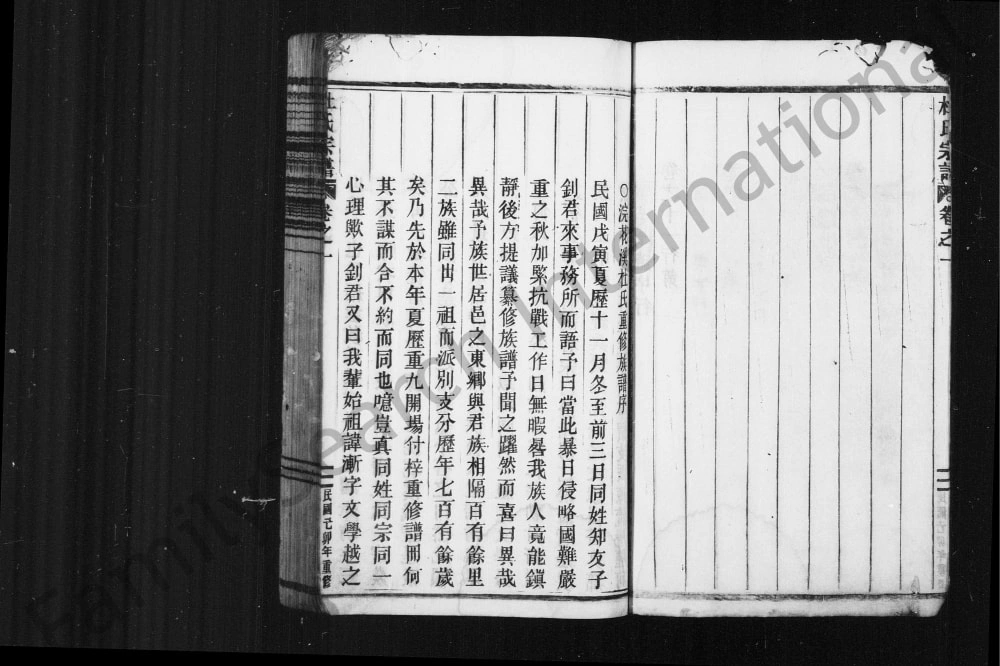 杜氏宗譜 卷之一
〇浣花溪杜氏重修族譜序
民國戊寅夏歷十一月冬至前三日同姓知友子
釗君來事務所而語予曰當此暴日侵略國難嚴
重之秋加緊抗戰工作日無暇晷我族人竟能鎭
靜後方提議纂修族譜予聞之躍然而喜曰異哉
異哉予族世居邑之東鄉與君族相隔百有餘里
二族雖同出一祖而派別支分歷年七百有餘歲
矣乃先於本年夏歷重九開場付梓重修譜冊何
其不謀而合不約而同也噫豈真同姓同宗同一
心理歟子釗君又曰我輩始祖諱漸字文學越之
杜氏宗譜 卷之一
民國己卯年重修
FamilySearch International